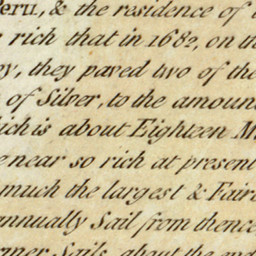 Peru, & the residence of
rich that in 1682, on th
ey, they paved two of the
of Silver, to the amoun
hich is about Eighteen M
e near so rich at present
much the largest & Faire
annually Sail from thence
Sails, about the